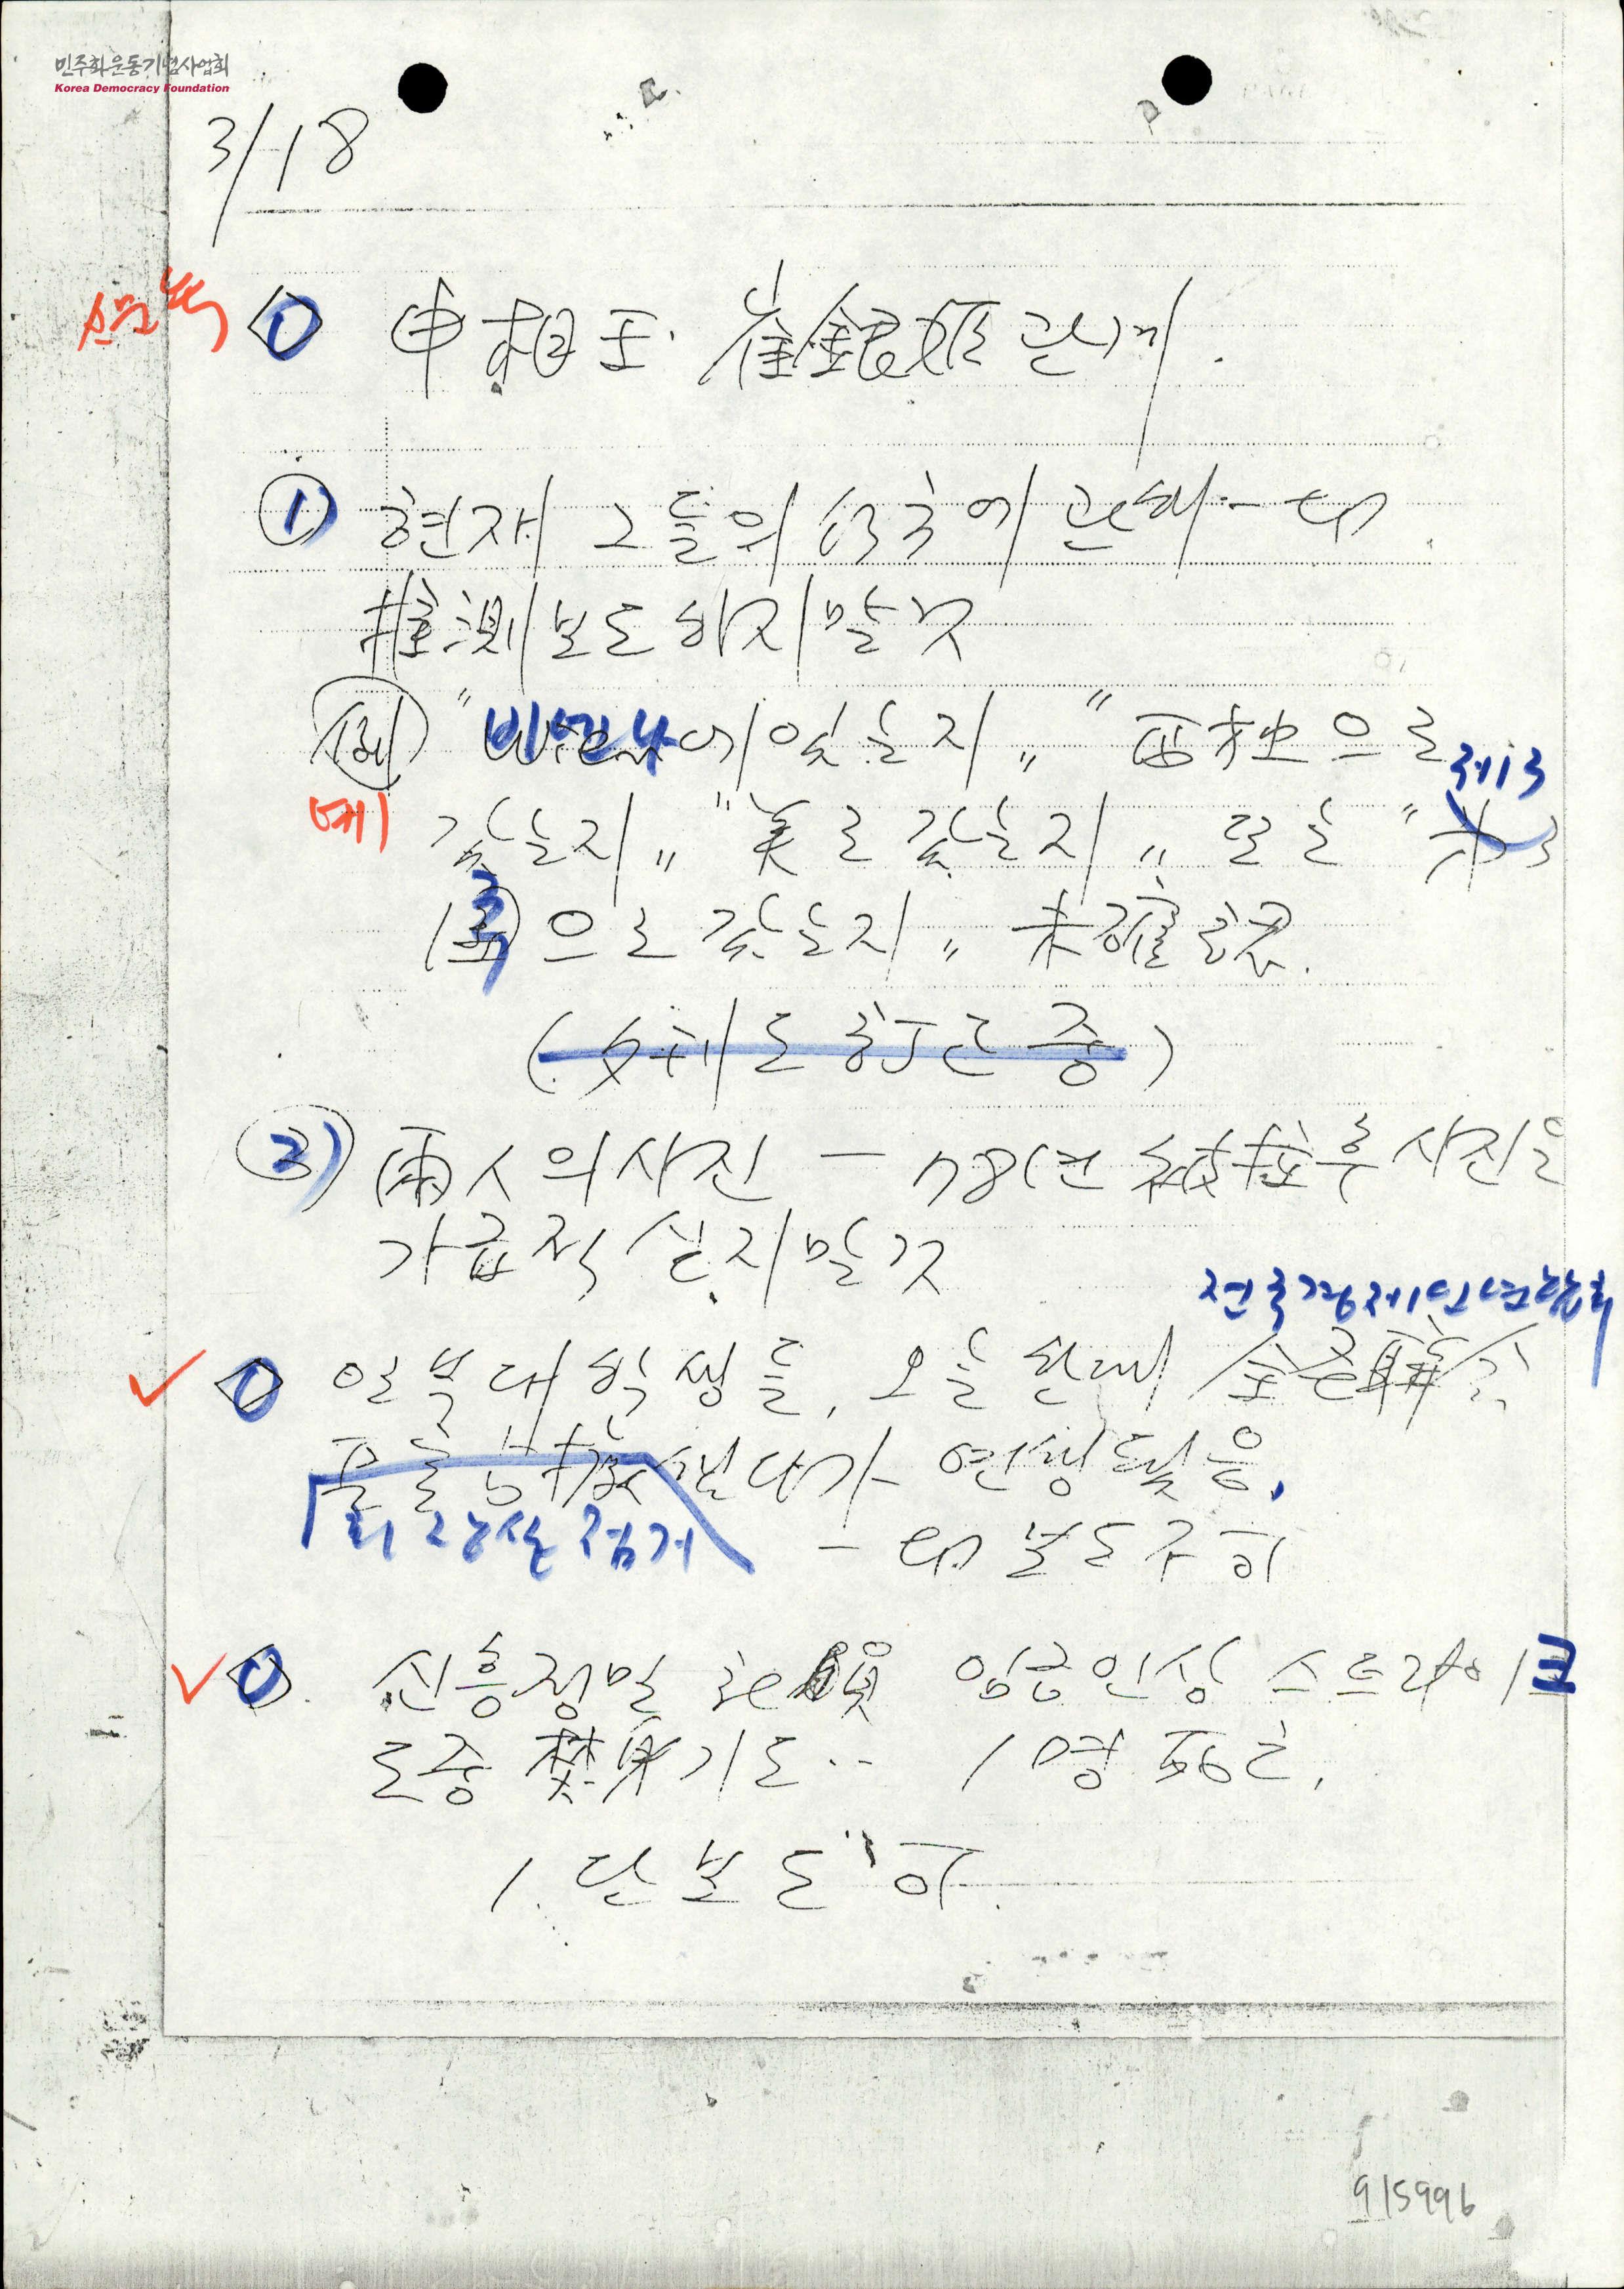 민주화운동기념사업회
Korea Democracy Foundation
3/18
申相玉·崔銀姬 관계.
① 현재 그들의 行方에 관해 一切
推測보도 하지 말 것
例 "비엔나에 있는지" "西独으로
예 제3
갔는지" "美로 갔는지" 또는 "第3
국으로 갔는지" 未確認.
중)
② 兩人의 사진 — 78년 被拉후 사진은
가급적 싣지 말 것
전국경제인연합회
일부 대학생들, 오늘 한때 全経聯
회장실 점거
했다가 연행됐음,
一切 보도 不可
신흥정밀 임금인상 스트라이크
도중 焚身기도‥ 1명 死亡.
1단 보도 可.
915996